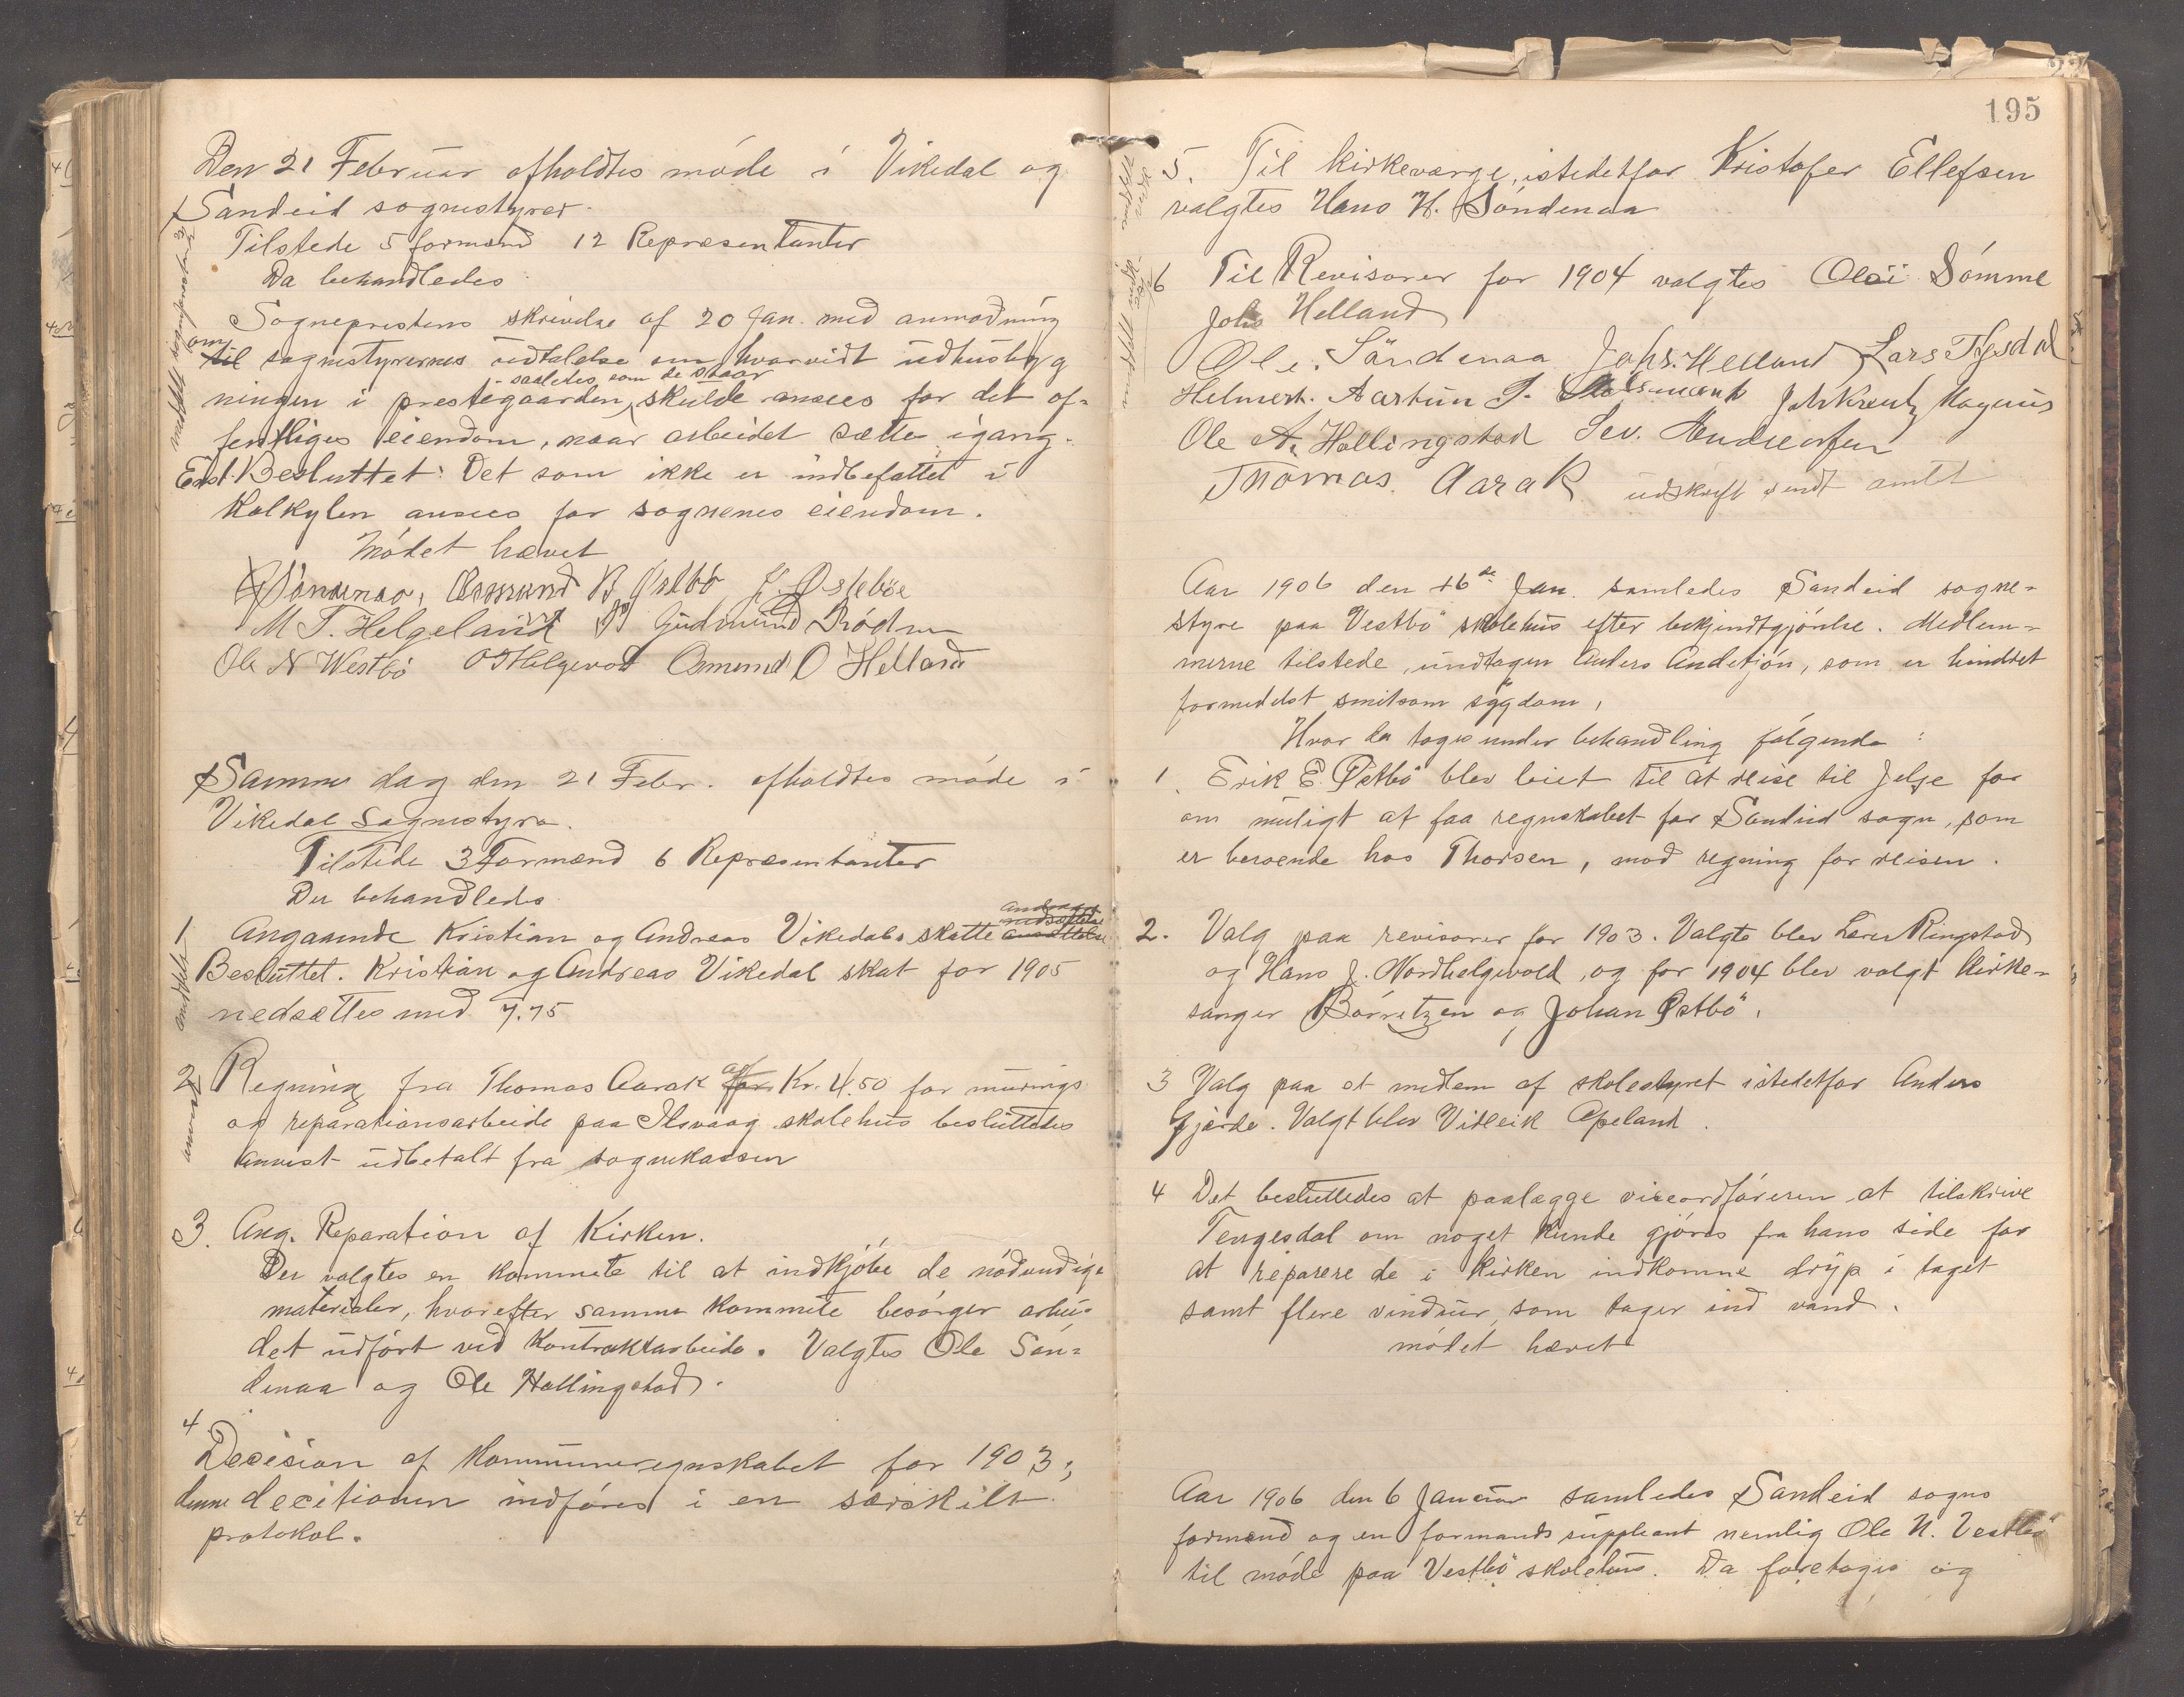 Den 21 Februar afholdtes møde i Vikedal og
Sandeid sognestyrer.
Tilstede 5 formænd 12 Repræsentanter
Da behandledes
Sogneprestens skrivelse af 20 Jan. med anmodning
om
til sognestyrernes udtalelse om hvorvidt udhusbyg
- saaledes som de staar
ningen i prestegaarden, skulde ansees for det of=
fentliges eiendom, naar arbeidet sættes igang.
Enst. Besluttet: Det som ikke er indbefattet i
Kalkylen ansees for sognenes eiendom.
Mødet hævet
Søndenaa, Osmund B Østbø L. Østebøe
M T. Helgeland Gudmund Rødne
Ole N Westbø O Helgevold Osmund O Helland
Samme dag den 21 Febr. afholdtes møde i
Vikedal Sognestyre.
Tilstede 3 Formænd 6 Repræsentanter
Der behandledes
1 Angaaende Kristian og Andreas Vikedals skatte
Besluttet. Kristian og Andreas Vikedal skat for 1905
nedsættes med 7.75
2 Regning fra Thomas Aarak af for Kr. 4.50 for murings
og reparationsarbeide paa Ilsvaag skolehus besluttedes
anvist udbetalt fra sognekassen
3. Ang. Reparation af Kirken.
Der valgtes en kommete til at indkjøbe de nødvendige
materialer, hvorefter samme Kommite besørger arbei=
det udført ved Kontraktarbeide. Valgtes Ole Søn=
denaa og Ole Hallingstad.
4
Decision af Kommuneregnskabet for 1903;
denne decitionen indføres i en særskilt
protokol.
195
5. Til kirkeværge, istedetfor Kristofer Ellefsen
valgtes Hans H. Søndenaa
6 Til Revisorer for 1904 valgtes Olai Sømme
Johs Helland
Ole. Søndenaa Johs. Helland Lars
Helmert. Aartun Joh Kreutz Magnus
Ole A. Hallingstad Sev. Andreasen
Thomas Aarak udskrift sendt amtet
Aar 1906 den 16de Jan. samledes Sandeid sogne=
styre paa Vestbø skolehus efter bekjendtgjørelse. Medlem=
merne tilstede, undtagen Anders, som er hindret
formedelst smitsom sygdom,
Hvor da toges under behandling følgende:
1. Erik E. Østbø blev leiet til at reise til Jelse for
om muligt at faa regnskabet for Sandeid sogn, som
er beroende hos Thorsen, mod regning for reisen.
2. Valg paa revisorer for 1903. Valgte blev Lærer Ringstad
og Hans J. Nordhelgevold, og for 1904 blev valgt Kirke=
sanger Børretzen og Johan Østbø.
3 Valg paa et medlem af skolestyret istedetfor Anders
Fjærde. Valgt blev Vidleik Apeland.
4 Det besluttedes at paalægge viceordføreren at tilskrive
Tengesdal om noget kunde gjøres fra hans side for
at reparere de i Kirken indkomne dryp i taget
samt flere vinduer, som tager ind vand.
mødet hævet
Aar 1906 den 6 Januar samledes Sandeid sogns
formænd og en formands suppleant nemlig Ole N. Vestbø
til møde paa Vestbø skolehus. Da foretoges og